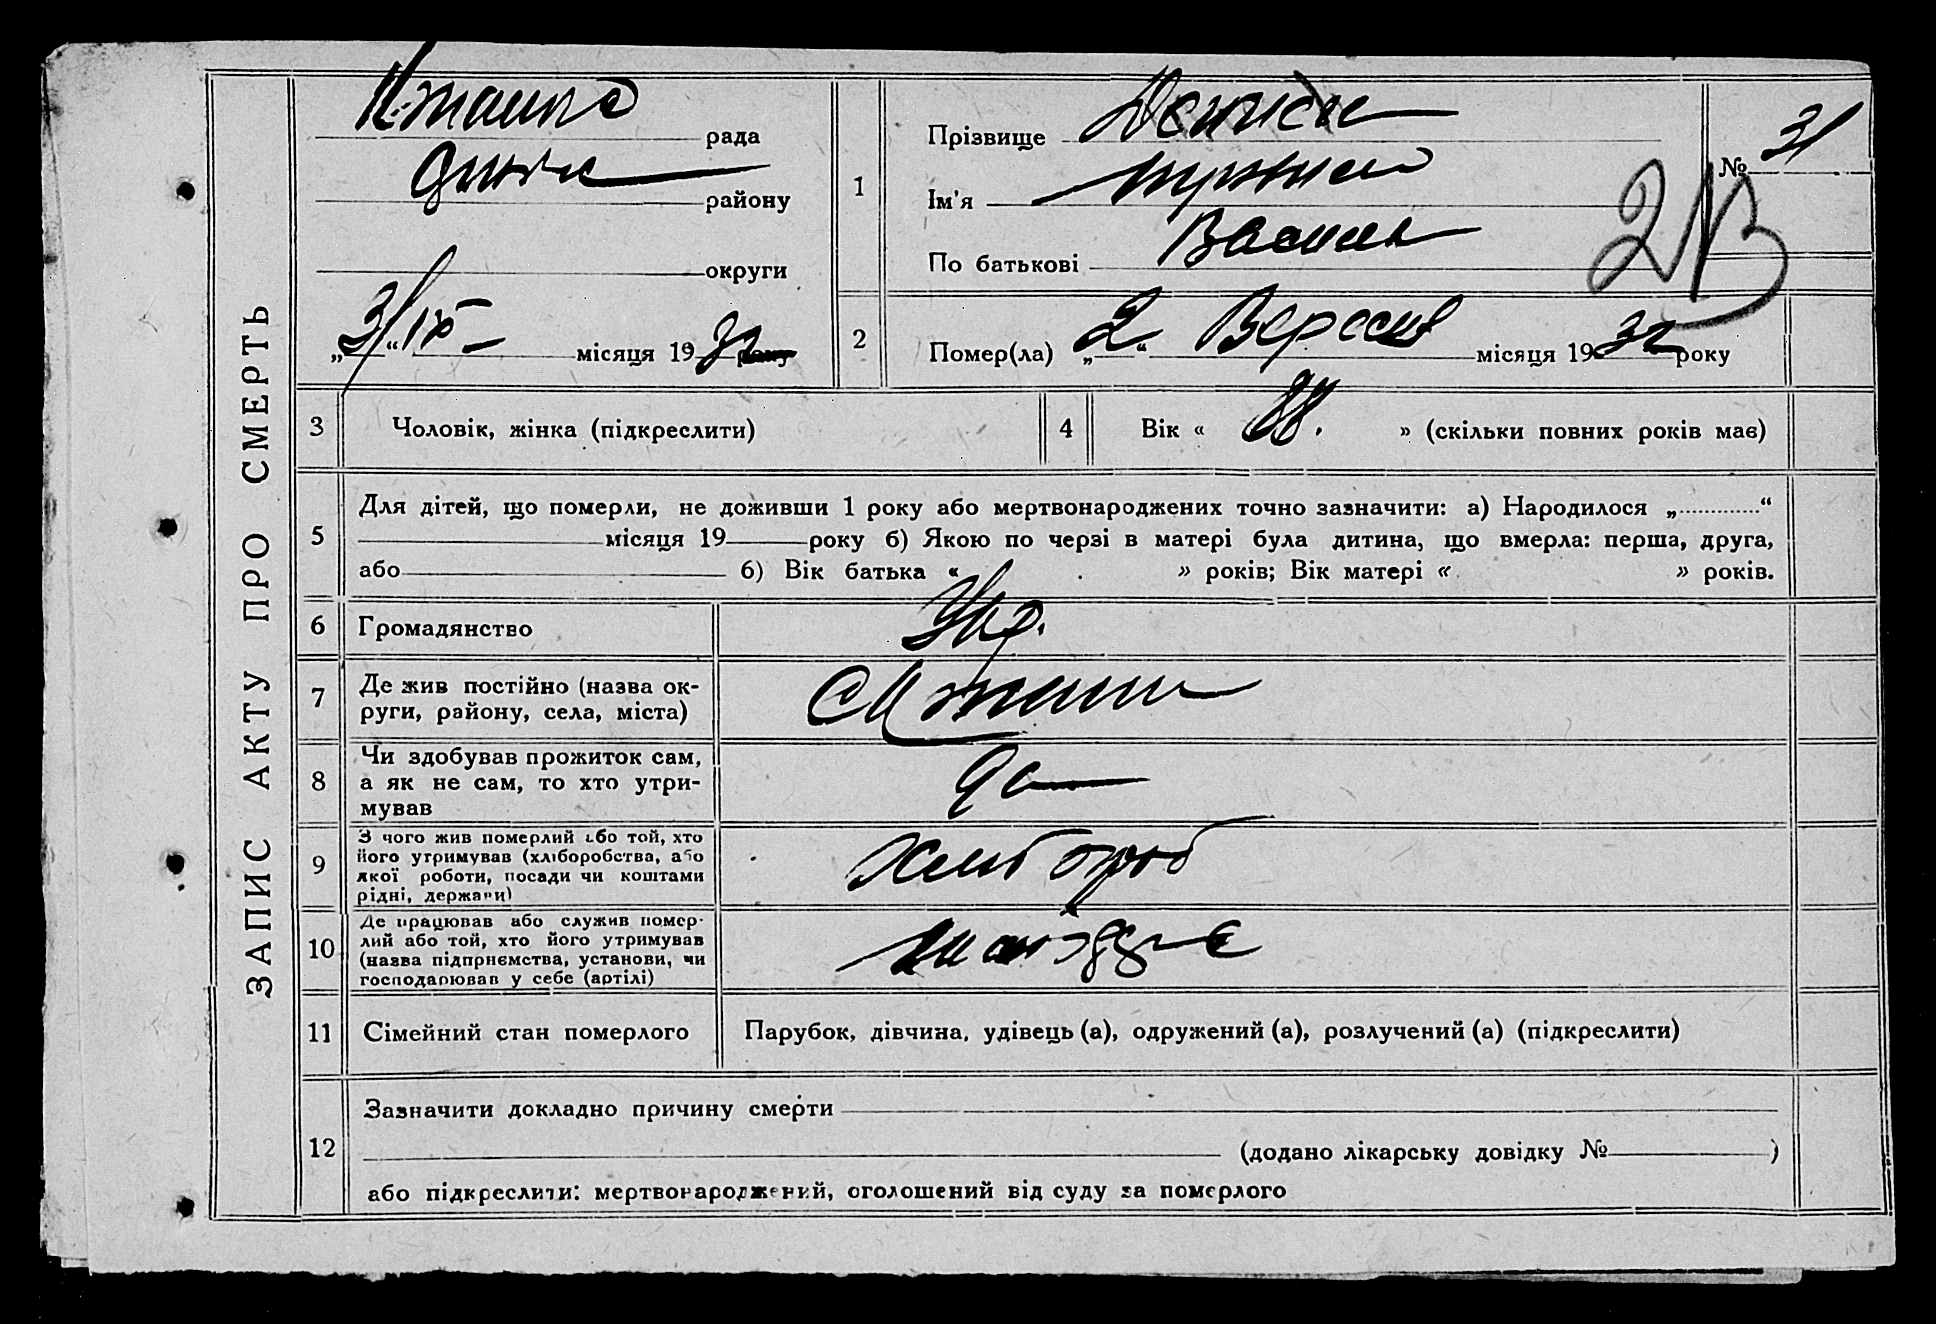 ЗАПИС АКТУ ПРО СМЕРТЬ
рада
району
округи
„3/IX “ місяця 1932 року
1
Прізвище Денисен
Ім'я
По батькові Василь
№ 31
2
Помер(ла) „2“ Вересня місяця 1932 року
3 Чоловік, жінка (підкреслити)
4 Вік « 28. » (скільки повних років має)
5
Для дітей, що померли, не доживши 1 року або мертвонароджених точно зазначити: а) Народилося „ “
місяця 19 року б) Якою по черзі в матері була дитина, що вмерла: перша, друга,
або б) Вік батька « » років; Вік матері « » років.
6 Громадянство Укр.
7 Де жив постійно (назва ок-
руги, району, села, міста)
8 Чи здобував прожиток сам,
а як не сам, то хто утри-
мував
да
9 З чого жив померлий або той, хто
його утримував (хліборобства, або
якої роботи, посади чи коштами
рідні, держави)
хлибороб
10 Де працював або служив помер-
лий або той, хто його утримував
(назва підприємства, установи, чи
господарював у себе (артілі)
11 Сімейний стан померлого
Парубок, дівчина, удівець (а), одружений (а), розлучений (а) (підкреслити)
12
Зазначити докладно причину смерти
(додано лікарську довідку № )
або підкреслити: мертвонароджений, оголошений від суду за померлого